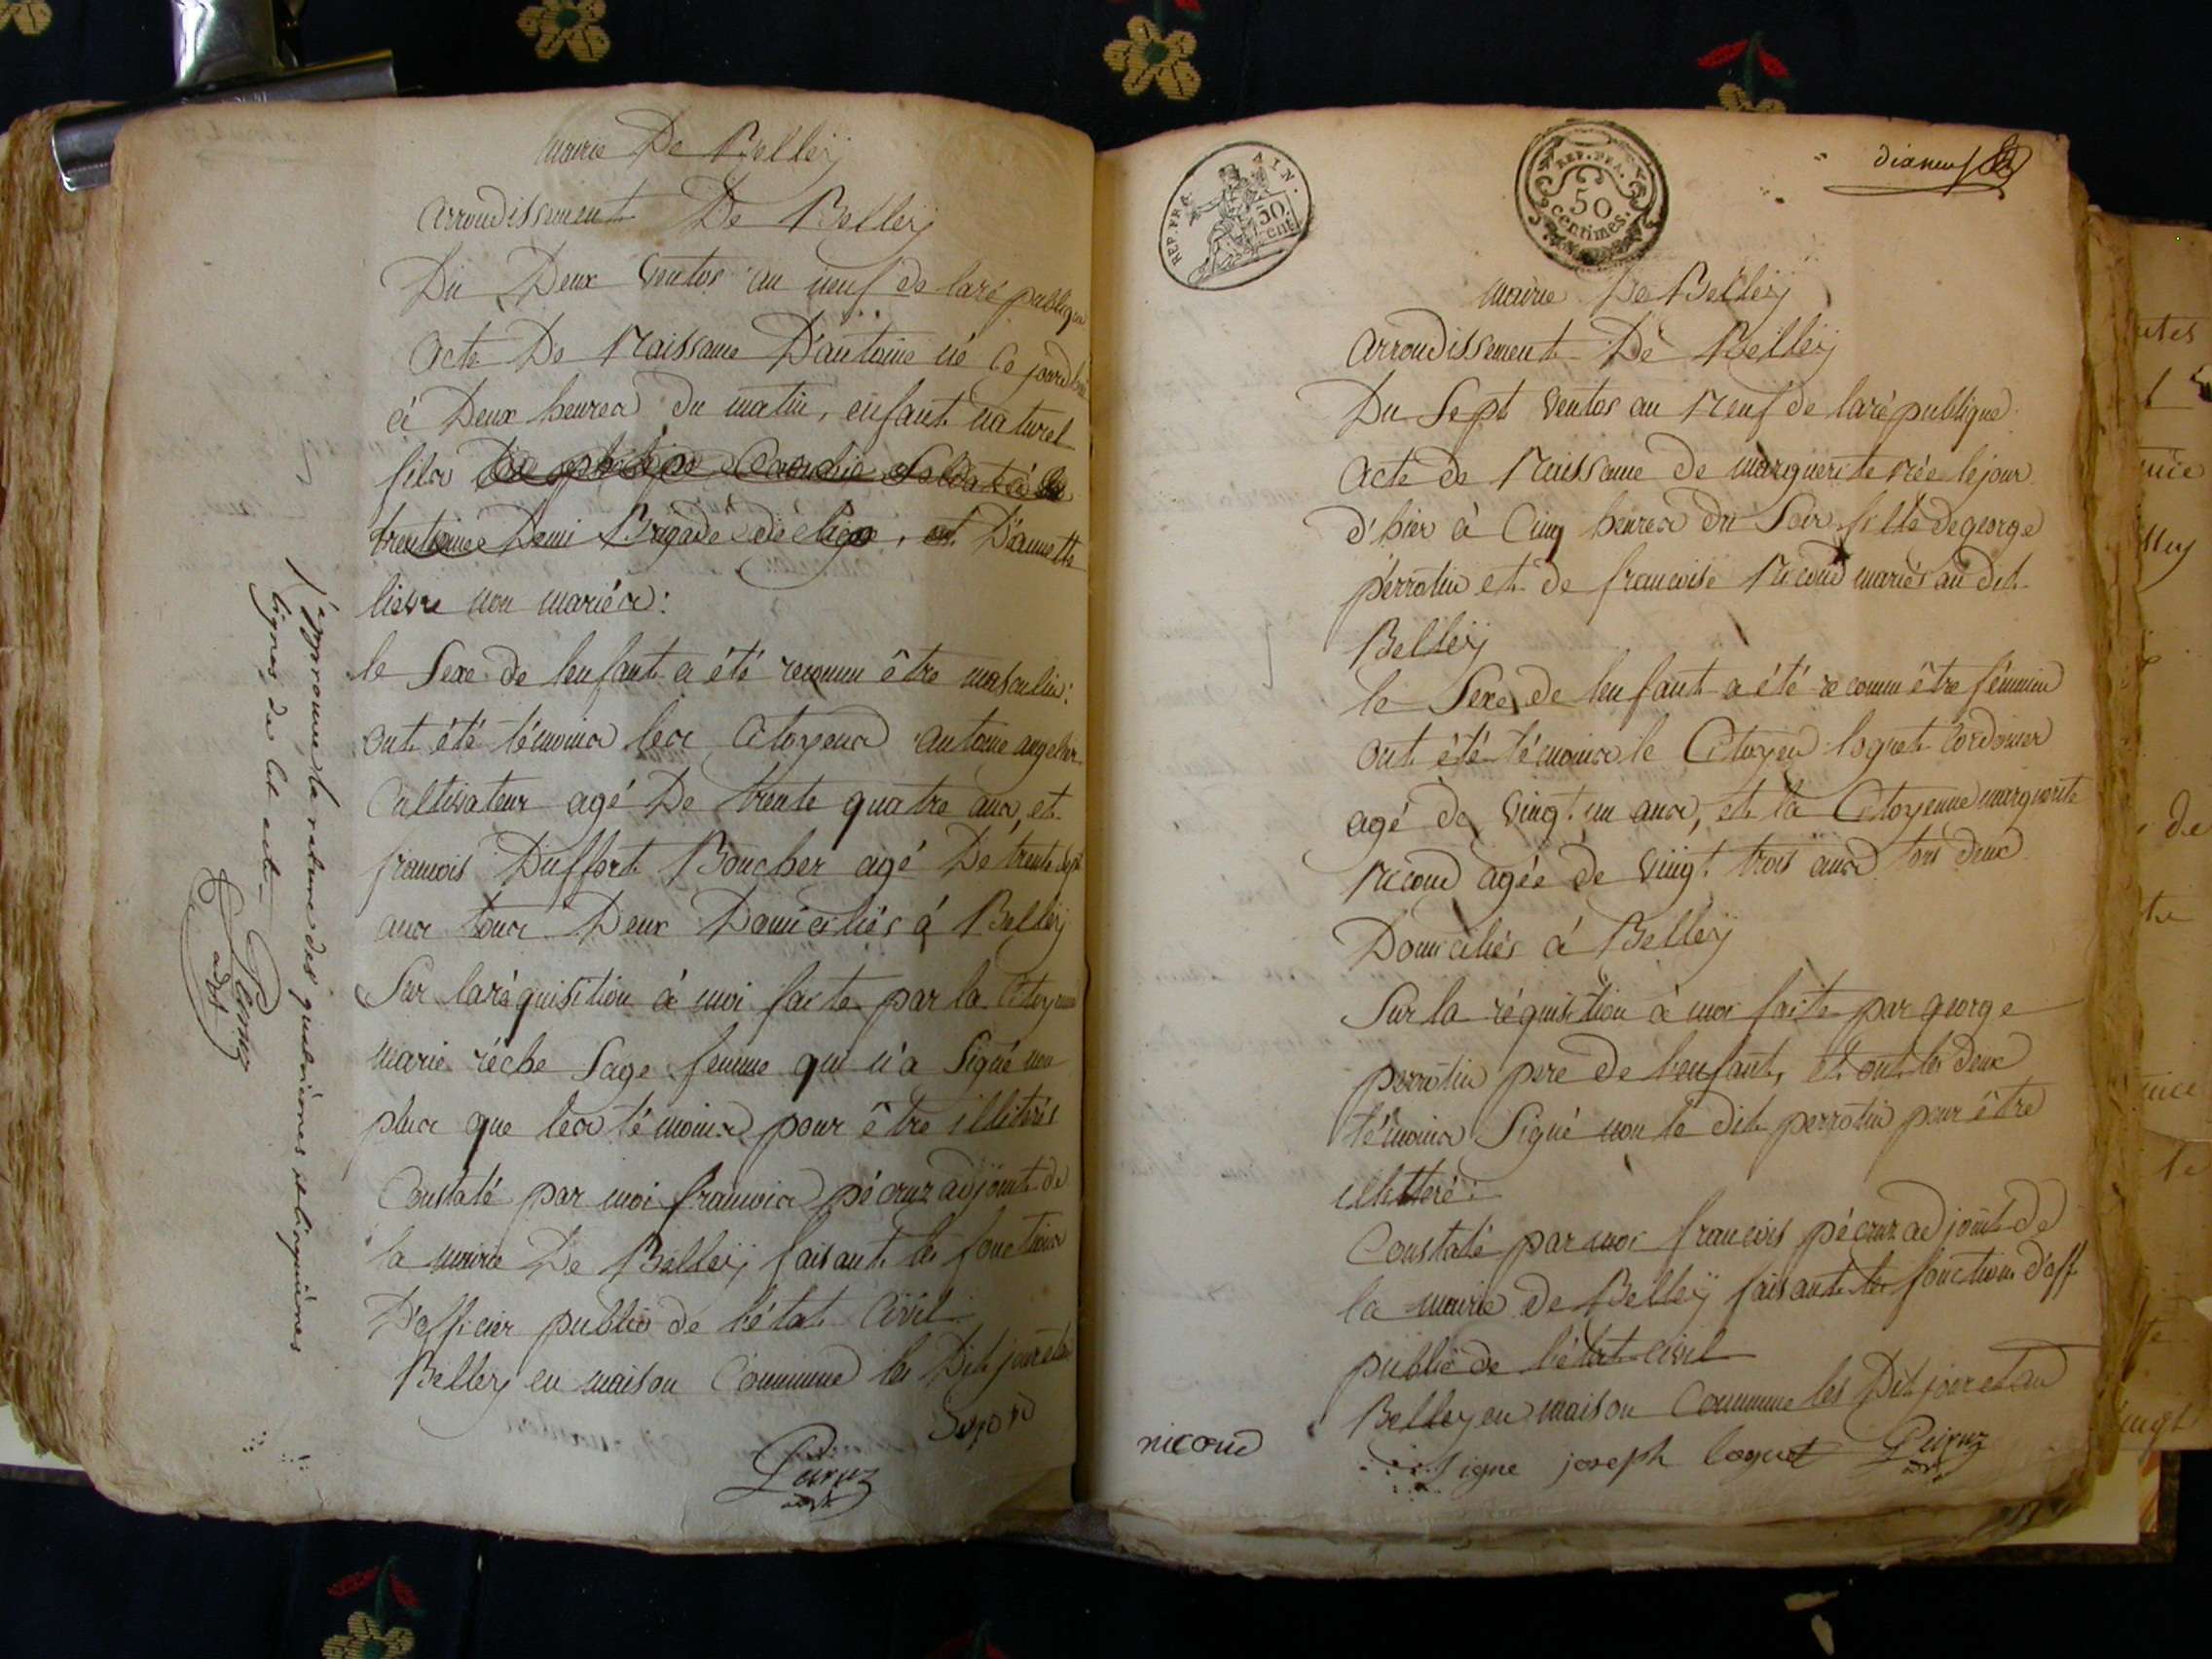 mairie De Belleÿ
arrondissement De Belleÿ
Du Deux ventos an neuf de la république
acte De Naissance D'antoine né ce jourdhui
à Deux heures du matin, enfant naturel
fils
trentieme Demi Brigade de ligne, et D'annette
lievre non mariés:
le Sexe de lenfant a été reconnu être masculin:
ont été témoins les Citoyens antoine angelier
Cultivateur agé De trente quatre ans, et
francois Duffort Boucher agé De trente sept
ans tous Deux Domiciliés à Belleÿ
Sur laréquisition à moi faite par la Citoyenne
marie réche Sage femme qui n'a Signé non
plus que les témoins pour être illitérés
Constaté par moi francois pécruz adjoint de
la mairie De Belleÿ faisant les fonctions
D'officier public de l'état Civil
Belley en maison Commune les Dit jour et an
Pécruz
adjt
J'approuve la rature des quatriemes et cinquièmes
lignes de cet acte
Pécruz
adjt
REP. FRA. AIN.
50 cent
REP. FRA.
50
centimes.
dixneuf
mairie De Belleÿ
arrondissement De Belleÿ
Du Sept ventos an neuf de larépublique
acte de Naissance de marguerite née lejour
d'hier à Cinq heures du Soir fille de george
perrotin et de francoise Nicoud mariés au dit
Belleÿ
le Sexe de lenfant a été reconnu être féminin
ont été témoins le Citoyen loguet Cordonier
agé de vingt un ans, et la Citoyenne marguerite
Nicoud agée de vingt trois ans tous deux
Domiciliés à Belleÿ
Sur la réquisition à moi faite par george
perrotin pere de l'enfant, et ont les deux
témoins Signé non le dit perrotin pour être
illitteré:
Constaté par moi francois pécruz adjoint de
la mairie de Belleÿ faisant les fonctions d'off.
public de l'état civil
Belley en maison Commune les Dit jour et an
nicoud
Signe joseph loguet Pécruz
adjt